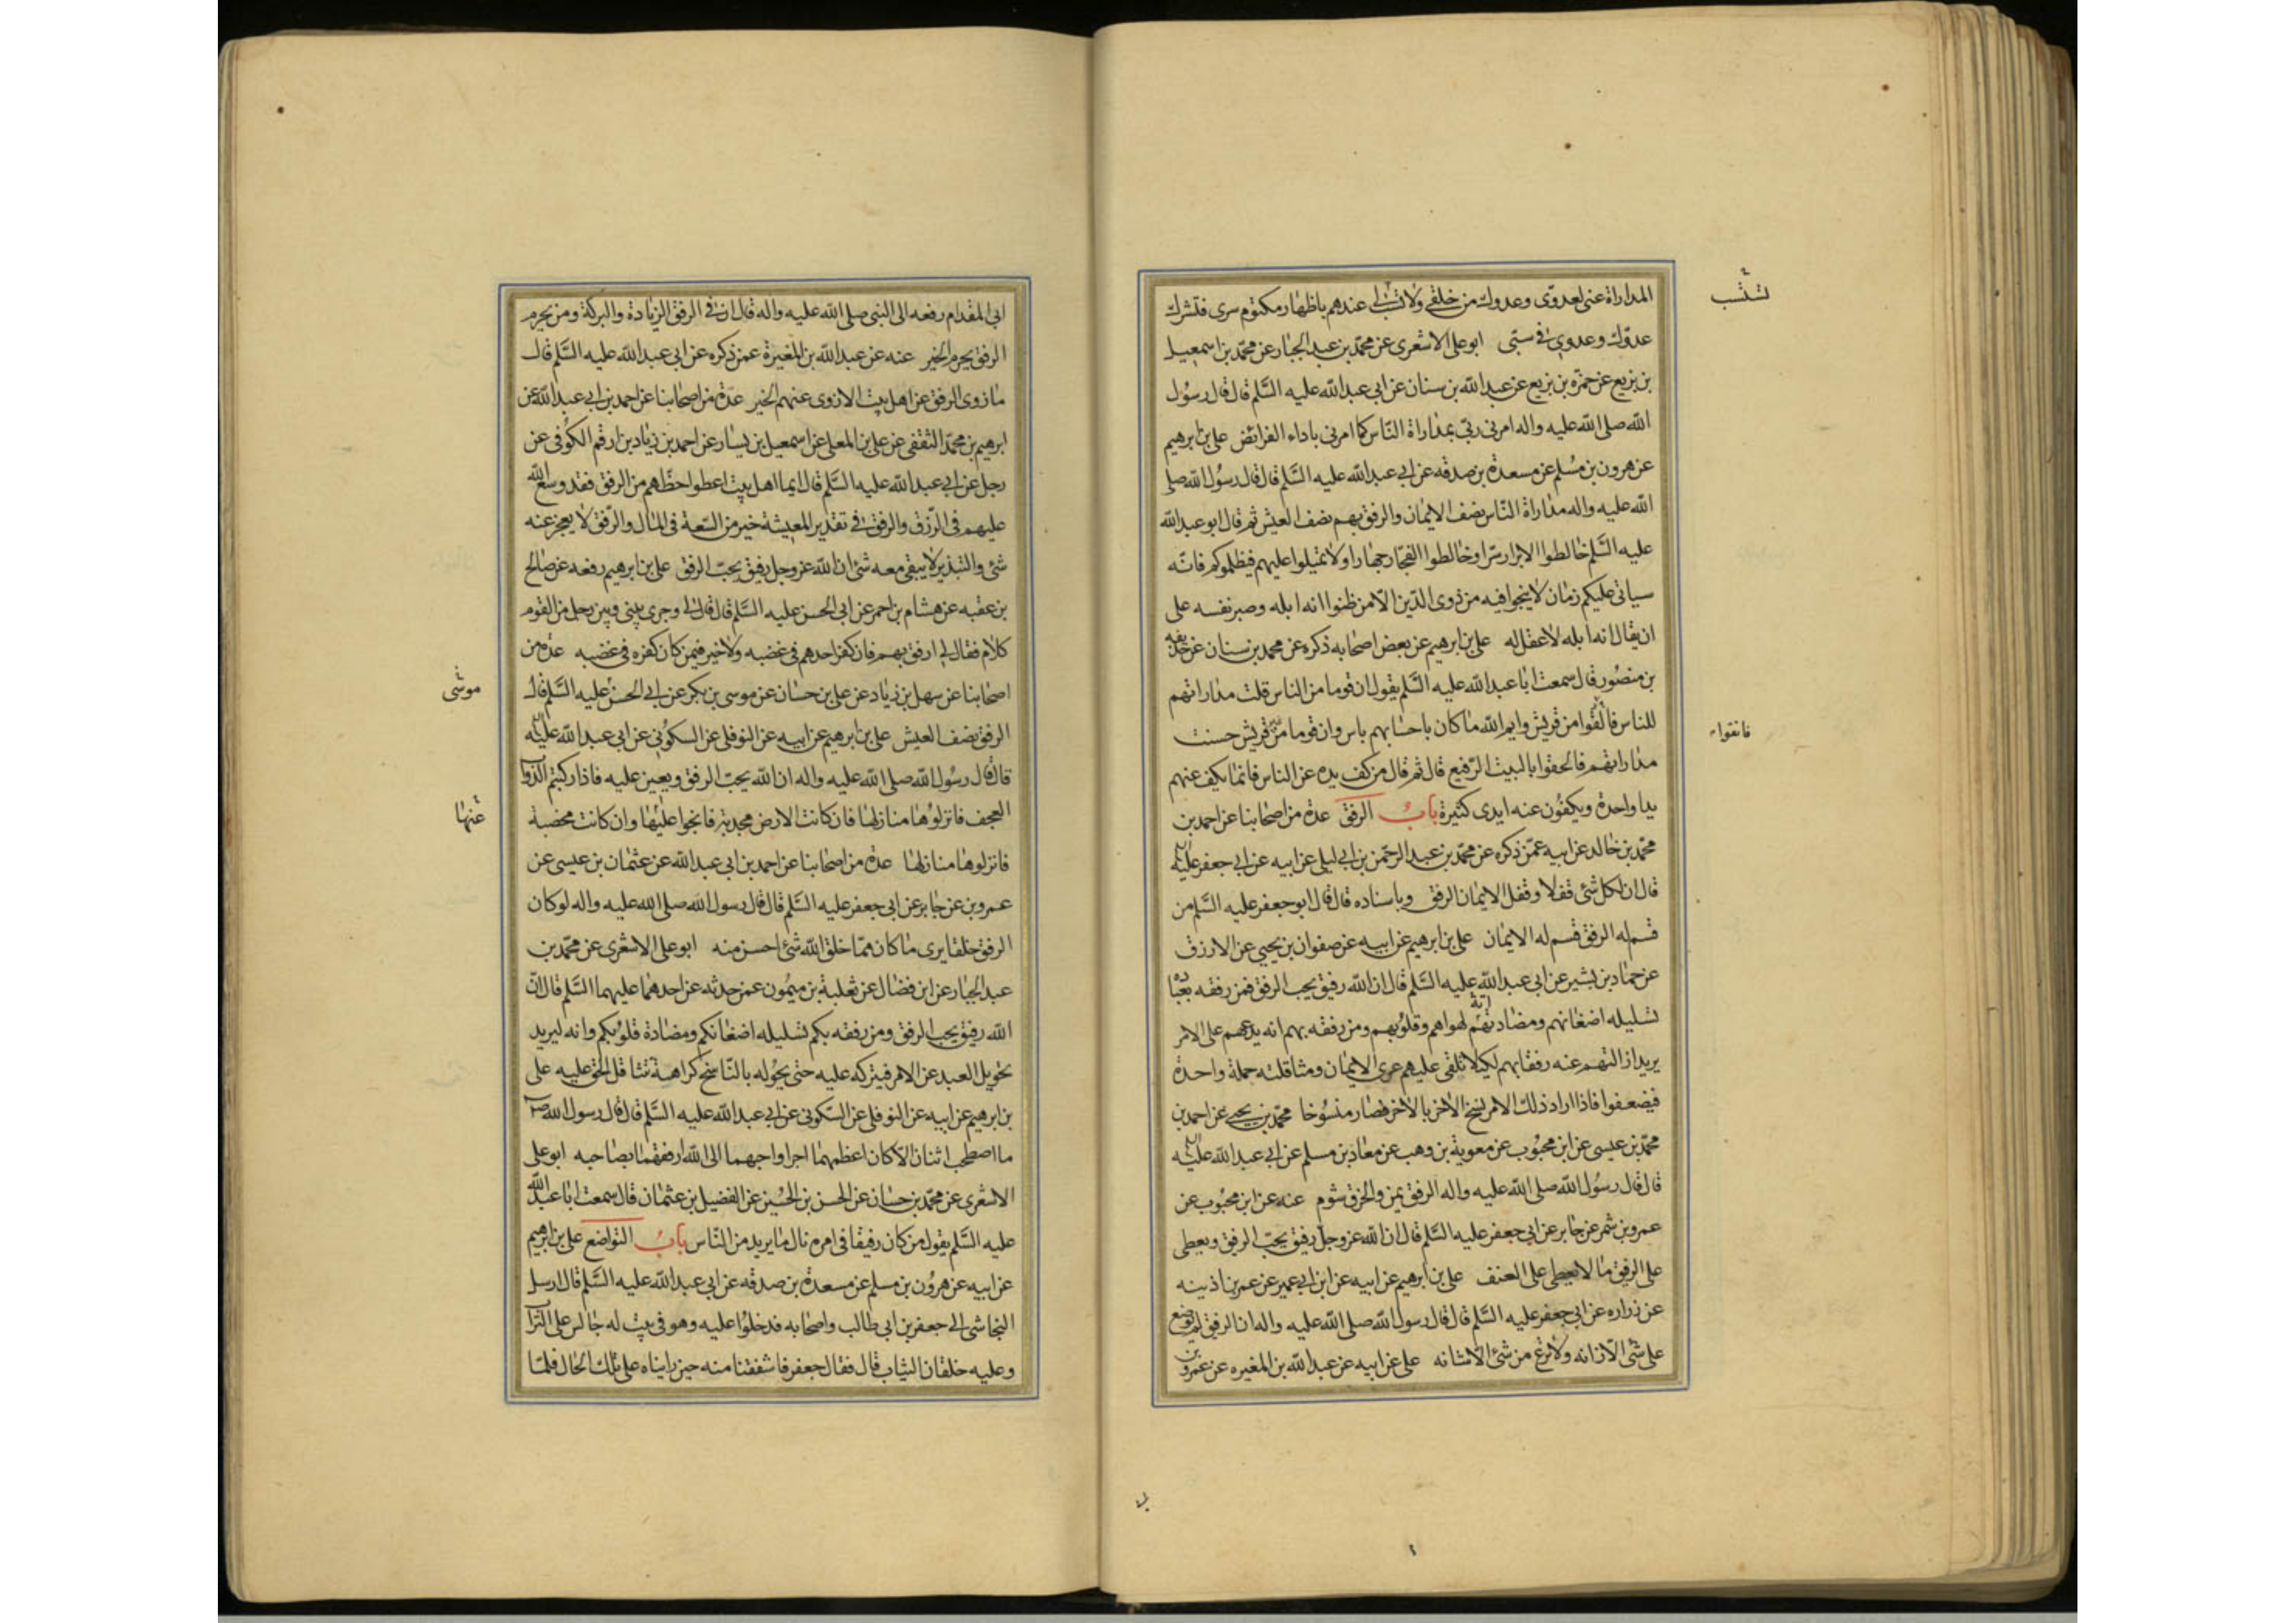 المداراة عنى لعدوّى وعدوك من خلقى ولا تسبّ لى عندهم باظهار مكتوم سرى فتشرك
عدوّك وعدوى فى سبّى ابو على الاشعرى عن محمّد بن عبد الجبار عن محمّد بن اسمعيل
بن بزيع عن حمزة بن بزيع عن عبد الله بن سنان عن ابى عبد الله عليه السَّلم قال قال رسُول
الله صلى الله عليه واله امرنى ربّى بمداراة النّاس كما امرنى باداء الفرائض على بن ابرهيم
عن هرون بن مسُلم عن مسعدة بن صدقه عن ابى عبد الله عليه السَّلم قال قال رسُول الله صلى
الله عليه واله مداراة النّاس نصف الايمان والرفق بهم نصف العيش ثم قال ابو عبد الله
عليه السَّلم خالطوا الابرار سرّا وخالطوا الفجّار جهارا ولا تميلوا عليهم فيظلموكم فانّه
سياتى عليكم زمان لا ينجوا فيه من ذوى الدّين الّا من ظنوا انه ابله وصبر نفسه على
ان يقال انه ابله لا عقل له على بن ابرهيم عن بعض اصحابه ذكره عن محمد بن سنان عن حذيفه
بن منصُور قال سمعت ابا عبد الله عليه السَّلم يقول ان قوما من الناس قلت مداراتهم
للناس فالقوا من قريش وايم الله ما كان باحسابهم باس وان قوما من قريش حسنت
مداراتهم فالحقوا بالبيت الرّفيع قال ثم قال من كف يده عن الناس فانما يكف عنهم
يدا واحدة ويكفُون عنه ايدى كثيرة بابُ الرفق عدة من اصحابنا عن احمد بن
محمّد بن خالد عن ابيه عمّن ذكره عن محمّد بن عبد الرحّمن بن ابى ليلى عن ابيه عن ابى جعفر عليه السلم
قال ان لكل شئ قفلا وقفل الايمان الرفق وباسناده قال قال ابو جعفر عليه السَّلم من
قسم له الرفق قسم له الايمان على بن ابرهيم عن ابيه عن صفوان بن يحيى عن الازرق
عن حماد بن بشير عن ابى عبد الله عليه السَّلم قال ان الله رفيق يحب الرفق فمن رفقه بعباده
تسليله اضغانهم ومضادتهم لهواهم وقلوُبهم ومن رفقه بهم انه يدعهم على الامر
يريد ازالتهم عنه رفقا بهم لكيلا تلقى عليهم عرى الايمان ومثاقلته جملة واحدة
فيضعفوا فاذا اراد ذلك الامر نسخ الاخر بالاخر فصار منسُوخا محمّد بن يحيى عن احمد بن
محمّد بن عيسى عن ابن محبُوب عن معوية بن وهب عن معاذ بن مسلم عن ابى عبد الله عليه السلم
قال قال رسُول الله صلى الله عليه واله الرفق يمن والخرق شوم عنه عن ابن محبُوب عن
عمرو بن شمر عن جابر عن ابى جعفر عليه السَّلم قال ان الله عز وجل رفيق يحبّ الرفق ويعطى
على الرفق ما لا يعطى على العنف على بن ابرهيم عن ابيه عن ابن ابى عمير عن عمر بن اذينه
عن زراره عن ابى جعفر عليه السَّلم قال قال رسول الله صلى الله عليه واله ان الرفق لم يوضع
على شئ الّا زانه ولا نزع من شئ الّا شانه على عن ابيه عن عبد الله بن المغيره عن عمرو بن
فانفوا
ابى المقدام رفعه الى النبى صلى الله عليه واله قال ان فى الرفق الزيادة والبركة ومن يحرم
الرفق يحرم الخير عنه عن عبد الله بن المغيرة عمن ذكره عن ابى عبد الله عليه السَّلم قال
ما زوى الرفق عن اهل بيت الا زوى عنهم الخير عدة من اصحابنا عن احمد بن ابى عبد الله عن
ابرهيم بن محمّد الثقفى عن على بن المعلى عن اسمعيل بن يسار عن احمد بن زياد بن ارقم الكوُفى عن
رجل عن ابى عبد الله عليه السَّلم قال ايما اهل بيت اعطوا حظّهم من الرفق فقد وسع الله
عليهم فى الرّزق والرفق فى تقدير المعيشة خير من السّعة فى المال والرّفق لا يعجز عنه
شئ والتبذير لا يبقى معه شئ ان الله عز وجل رفيق يحبّ الرفق على بن ابرهيم رفعه عن صالح
بن عقبه عن هشام بن احمر عن ابى الحسن عليه السَّلم قال قال لى وجرى بينى وبين رجل من القوم
كلام فقال لى ارفق بهم فان كفر احدهم فى غضبه ولا خير فيمن كان كفره فى غضبه عدة من
اصحابنا عن سهل بن زياد عن على بن حسّان عن موسى بن بكر عن ابى الحسن عليه السَّلم قال
الرفق نصف العيش على بن ابرهيم عن ابيه عن النوفلى عن السكوُنى عن ابى عبد الله عليه السلم
قال قال رسُول الله صلى الله عليه واله ان الله يحبّ الرفق ويعين عليه فاذا ركبتم الدواب
العجف فانزلوُها منازلها فان كانت الارض مجدبة فانجوا عليها وان كانت مخصبة
فانزلوها منازلها عدة من اصحابنا عن احمد بن ابى عبد الله عن عثمان بن عيسى عن
عمرو بن عن جابر عن ابى جعفر عليه السَّلم قال قال رسول الله صلى الله عليه واله لو كان
الرفق خلقا يرى ما كان ممّا خلق الله شئ احسن منه ابو على الاشعرى عن محمّد بن
عبد الجبار عن ابن فضال عن ثعلبة بن ميمُون عمن حدثه عن احدهما عليهما السَّلم قال انّ
الله رفيق يحب الرفق ومن رفقه بكم تسليله اضغانكم ومضادة قلوُبكم وانه ليريد
تحويل العبد عن الامر فيتركه عليه حتى يحوُله بالنّاسخ كراهة تثاقل الحق عليه على
بن ابرهيم عن ابيه عن النوفلى عن السّكونى عن ابى عبد الله عليه السَّلم قال قال رسول الله ص
ما اصطحب اثنان الّا كان اعظمهما اجرا واحبهما الى الله ارفقهما بصاحبه ابو على
الاشعرى عن محمّد بن حسّان عن الحسن بن الحسُين عن الفضيل بن عثمان قال سمعت ابا عبد الله
عليه السَّلم يقول من كان رفيقا فى امره نال ما يريد من النّاس بابُ التواضع على بن ابرهيم
عن ابيه عن هروُن بن مسلم عن مسعدة بن صدقه عن ابى عبد الله عليه السَّلم قال ارسل
النجاشى الى جعفر بن ابى طالب واصحابه فدخلوُا عليه وهو فى بيت له جالس على التراب
وعليه خلقان الثياب قال فقال جعفر فاشفقنا منه حين رايناه على تلك الحال فلمّا
موسى
عنها